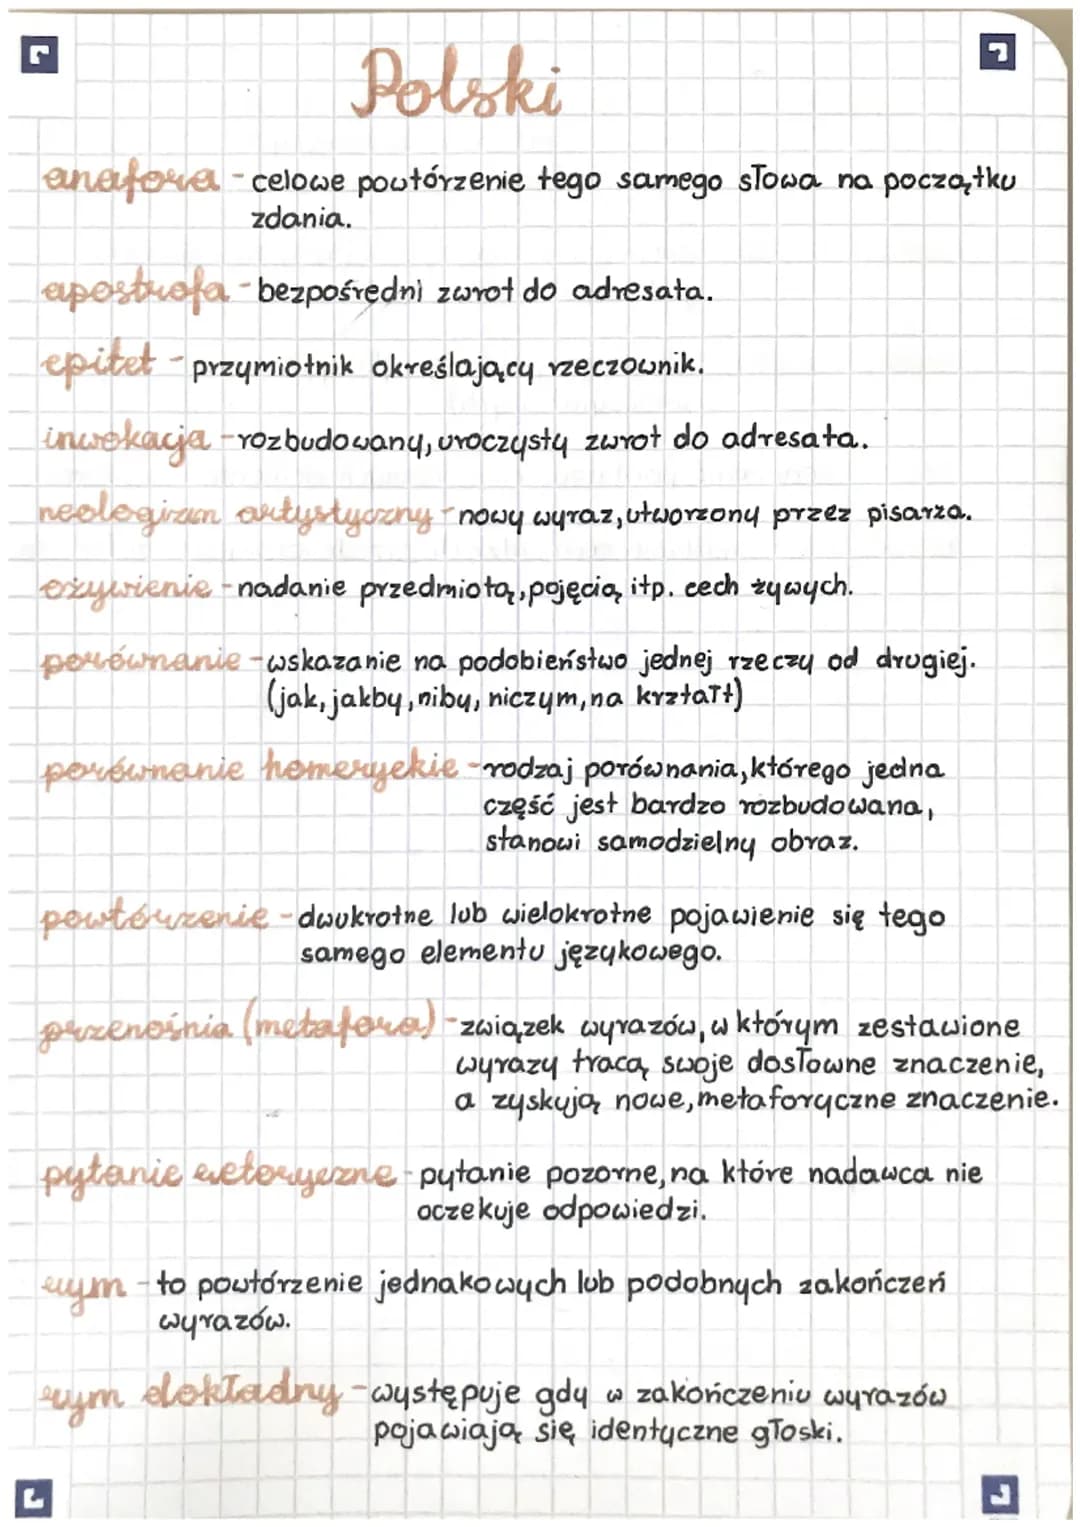 Polski
anafora - celowe powtórzenie tego samego słowa na początku
zdania.
apostrofa - bezpośredni zwrot do adresata.
epitet - przymiotnik określający rzeczownik.
inwokacja - rozbudowany, uroczysty zwrot do adresata.
neologizm artystyczny - nowy wyraz, utworzony przez pisarza.
ożywienie - nadanie przedmiotą, pojęcią itp. cech żywych.
porównanie - wskazanie na podobieństwo jednej rzeczy od drugiej.
(jak, jakby, niby, niczym, na krztałt)
porównanie homeryckie - rodzaj porównania, którego jedna
część jest bardzo rozbudowana,
stanowi samodzielny obraz.
powtórzenie - dwukrotne lub wielokrotne pojawienie się tego
samego elementu językowego.
przenośnia (metafora) - związek wyrazów, w którym zestawione
wyrazy tracą swoje dosłowne znaczenie,
a zyskują nowe, metaforyczne znaczenie.
pytanie retoryczne - pytanie pozorne, na które nadawca nie
oczekuje odpowiedzi.
rym - to powtórzenie jednakowych lub podobnych zakończeń
wyrazów.
rym dokładny - występuje gdy w zakończeniu wyrazów
pojawiają się identyczne głoski.